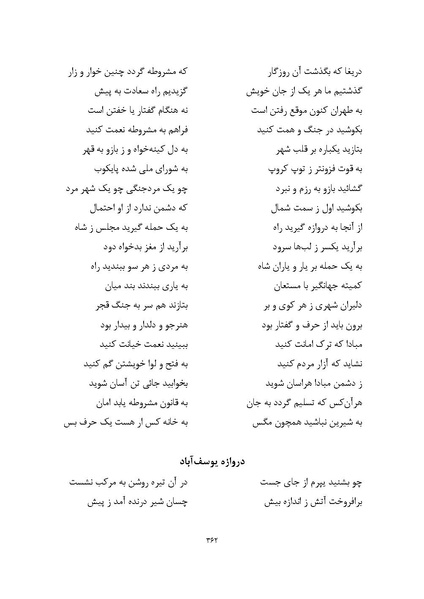 دریغا که بگذشت آن روزگار که مشروطه گردد چنین خوار و زار
گذشتیم ما هر یک از جان خویش گزیدیم راه سعادت به پیش
به طهران کنون موقع رفتن است نه هنگام گفتار یا خفتن است
بکوشید در جنگ و همت کنید فراهم به مشروطه نعمت کنید
بتازید یکباره بر قلب شهر به دل کینه‌خواه و ز بازو به قهر
به قوت فزونتر ز توپ کروپ به شورای ملی شده پایکوب
گشائید بازو به رزم و نبرد چو یک مردجنگی چو یک شهر مرد
بکوشید اول ز سمت شمال که دشمن ندارد از او احتمال
از آنجا به دروازه گیرید راه به یک حمله گیرید مجلس ز شاه
برآرید یکسر ز لب‌ها سرود برآرید از مغز بدخواه دود
به یک حمله بر یار و یاران شاه به مردی ز هر سو ببندید راه
کمیته جهانگیر با مستعان به یاری ببندند بند میان
دلیران شهری ز هر کوی و بر بتازند هم سر به جنگ قجر
برون باید از حرف و گفتار بود هنرجو و دلدار و بیدار بود
مبادا که ترک امانت کنید ببینید نعمت خیانت کنید
نشاید که آزار مردم کنید به فتح و لوا خویشتن گم کنید
ز دشمن مبادا هراسان شوید بخوابید جائی تن آسان شوید
هرآن‌کس که تسلیم گردد به جان به قانون مشروطه یابد امان
به شیرین نباشید همچون مگس به خانه کس ار هست یک حرف بس
دروازه یوسف‌آباد
چو بشنید یپرم از جای جست در آن تیره روشن به مرکب نشست
برافروخت آتش ز اندازه بیش چسان شیر درنده آمد ز پیش
۳۶۲